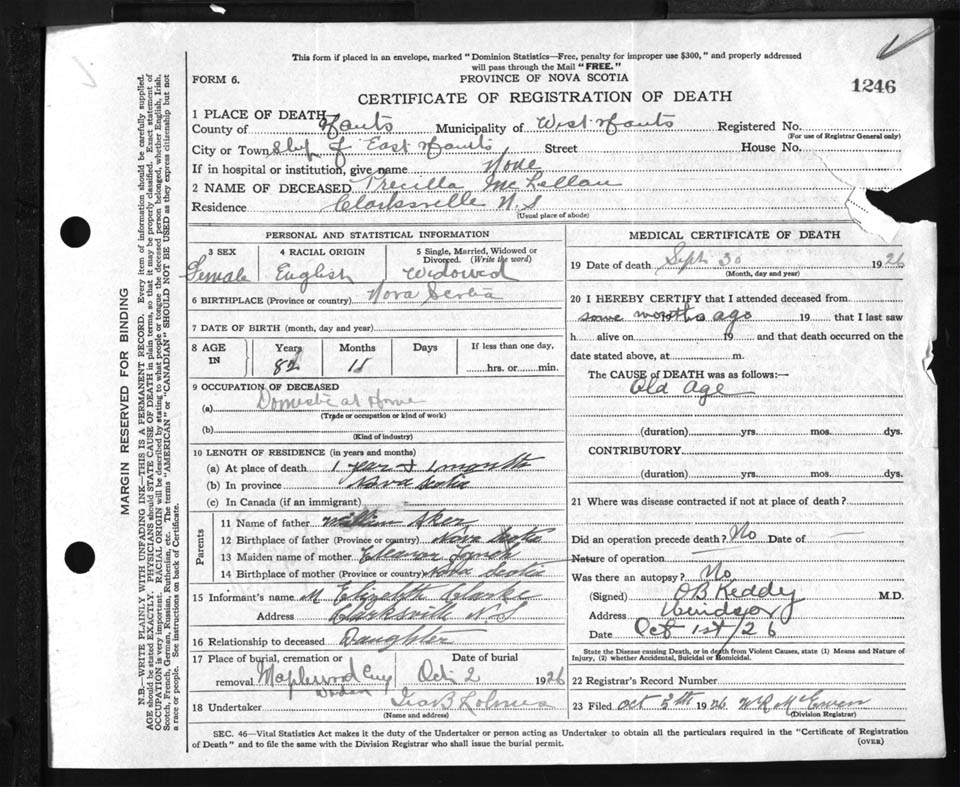 This form if placed in an envelope, marked "Dominion Statistics—Free, penalty for improper use $300," and properly addressed
will pass through the Mail "FREE."
FORM 6.
PROVINCE OF NOVA SCOTIA
1246
CERTIFICATE OF REGISTRATION OF DEATH
1 PLACE OF DEATH
County of Hants Municipality of West Hants Registered No.
(For use of Registrar General only)
City or Town of East Hants Street House No.
If in hospital or institution, give name None
2 NAME OF DECEASED Precilla McLellan
Residence Clarksville N.S
(Usual place of abode)
PERSONAL AND STATISTICAL INFORMATION
3 SEX
Female
4 RACIAL ORIGIN
English
5 Single, Married, Widowed or
Divorced. (Write the word)
Widowed
6 BIRTHPLACE (Province or country) Nova Scotia
7 DATE OF BIRTH (month, day and year)
8 AGE
IN
Years
Months
11
Days
If less than one day,
hrs. or min.
9 OCCUPATION OF DECEASED
(a) Domestic at Home
(Trade or occupation or kind of work)
(b)
(Kind of industry)
10 LENGTH OF RESIDENCE (in years and months)
(a) At place of death 1 year + 1 month
(b) In province Nova Scotia
(c) In Canada (if an immigrant)
Parents
11 Name of father William Aker
12 Birthplace of father (Province or country) Nova Scotia
13 Maiden name of mother Eleanor Lynch
14 Birthplace of mother (Province or country) Nova Scotia
15 Informant's name M Elizabeth Clarke
Address Clarksville N.S
16 Relationship to deceased Daughter
17 Place of burial, cremation or
removal Maplewood Cem
Windsor
Date of burial
Oct 2 1926
18 Undertaker
(Name and address)
MEDICAL CERTIFICATE OF DEATH
19 Date of death Sept 30 1926
(Month, day and year)
20 I HEREBY CERTIFY that I attended deceased from
some months ago 19 19 that I last saw
h alive on 19 and that death occurred on the
date stated above, at m.
The CAUSE OF DEATH was as follows:—
Old Age
(duration) yrs. mos. dys.
CONTRIBUTORY
(duration) yrs. mos. ds.
21 Where was disease contracted if not at place of death?
Did an operation precede death? No Date of
Nature of operation
Was there an autopsy? No
(Signed) O B Keddy M.D.
Address Windsor
Date Oct 1st/26
State the Disease causing Death, or in death from Violent Causes, state (1) Means and Nature of
Injury, (2) whether Accidental, Suicidal or Homicidal.
22 Registrar's Record Number
23 Filed Oct 5th 1926 W R McEwen
(Division Registrar)
SEC. 46—Vital Statistics Act makes it the duty of the Undertaker or person acting as Undertaker to obtain all the particulars required in the "Certificate of Registration
of Death" and to file the same with the Division Registrar who shall issue the burial permit.
(OVER)
MARGIN RESERVED FOR BINDING
N.B.—WRITE PLAINLY WITH UNFADING INK—THIS IS A PERMANENT RECORD. Every item of information should be carefully supplied.
AGE should be stated EXACTLY. PHYSICIANS should STATE CAUSE OF DEATH in plain terms, so that it may be properly classified. Exact statement of
OCCUPATION is very important. RACIAL ORIGIN will be described by stating to what people or tongue the deceased person belonged, whether English, Irish,
Scotch, French, German, Russian, Ruthenian, etc. The terms "AMERICAN" or "CANADIAN" SHOULD NOT BE USED as they express citizenship but not
a race or people. See instructions on back of Certificate.